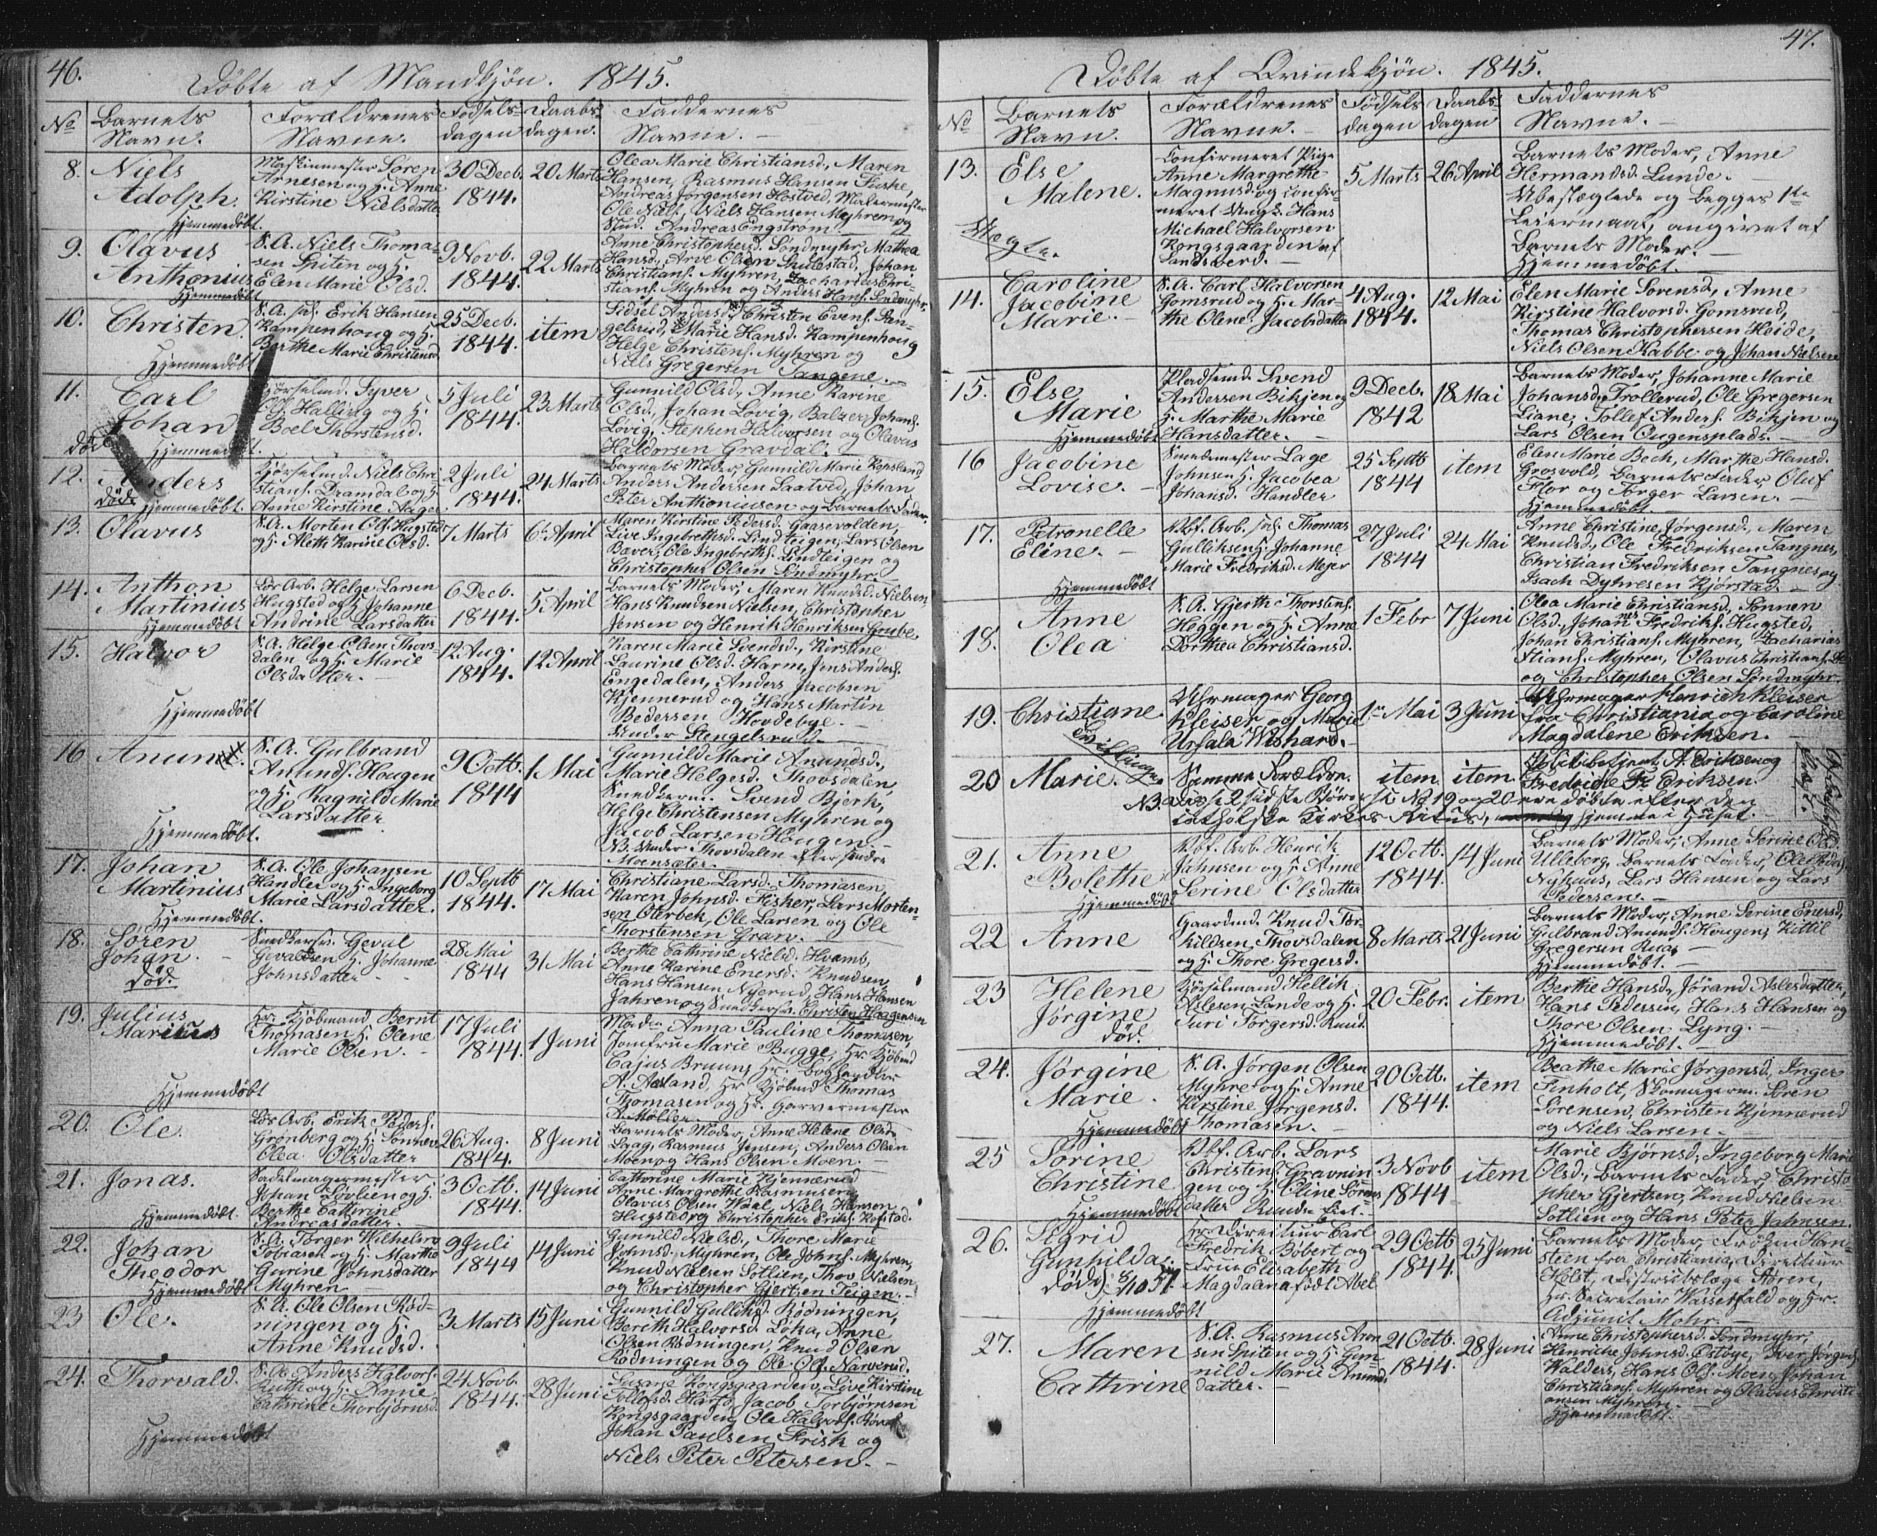 46.
Døbte af Mandkjøn. 1845.
No Barnets Navn. Forældrenes Navne. Fødselsdagen. Daabsdagen. Faddernes Navne.
8. Niels Adolph. Hjemmedøbt
Maskinmester Søren
Arnesen og H. Anne
Kirstine Nielsdatter
30 Decb. 1844. 20 Marts
Olea Marie Christiansd, Maren
Hansen, Rasmus Hansen Fiske,
Andreas Jørgensen Hostved,
Ole Niels, Niels Hansen Myhren og
Stud. Andreas Engstrøm
9. Olavus Anthonius Hjemmedøbt
S.A. Niels Thoma-
sen Spiten og H.
Elen Marie Olsd.
9 Novb. 1844. 22 Marts
Anne Christophersd. Søndmyhr, Mathea
Hansd, Arve Olsen Skulestad, Johan
Christians. Myhren, Zacharias Chri-
stians. Myhren og Anders Hans. Søndmyhr.
10. Christen. Hjemmedøbt
S.A. Erik Hansen
Kampenhoug og H.
Berthe Marie Christensd.
25 Decb. 1844. item
Sidsel Andersd, Christen Evens.
Marie Hansd. Kampenhoug
Helge Christens. Myhren og
Niels Gregersen Tangene.
11. Carl Johan død Hjemmedøbt.
Kjørselmd. Syver
Ols. Halling og H.
Boel Thorstensd.
5 Juli 1844. 23 Marts
Gunnild Olsd, Anne Karine
Olsd, Johan Lovig, Balzer Johans.
Lovig, Stephen Halvorsen og Olavus
Halvorsen Gravdal.
12. Anders død. Hjemmedøbt.
Kjørselmd. Niels Chri-
stians. Dramdal og H.
Anne Kirstine Aager
2 Juli 1844. 24 Marts
Barnets Moder, Gunnild Marie Kopsland
Anders Andersen Saatved, Johan
Peter Anthoniusen og Barnets Fader.
13. Olavus
S.A. Morten Ols. Hugsted
og H. Aleth Karine Olsd.
7 Marts 6 April
Maren Kirstine Pedersd. Gaasevolden,
Live Ingebrethsd. Lindteigen, Lars Olsen
Bæver, Ole Ingebreths. Lindteigen og
Christopher Olsen Søndmyhr.
14. Anthon Martinius Hjemmedøbt
Løs Arb. Helge Larsen
Hugsted og H. Johanne
Andrine Larsdatter
6 Decb. 1844. 5 April
Barnets Moder, Maren Knudsd. Nielsen,
Hans Knudsen Nielsen, Christopher
Jensen og Henrik Henriksen Grube.
15. Halvor Hjemmedøbt
S.A. Helge Olsen Thovs-
dalen og H. Marie
Olsdatter.
12 Aug. 1844. 12 April
Karen Marie Svendsd, Kirstine
Laurine Olsd. Harm, Jens Anders.
Engedalen, Anders Jacobsen
Kjennerud og Hans Martin
Pedersen Hovdebye.
Under Stengelsrud.
16 Anund. Hjemmedøbt.
S.A. Gulbrand
Anunds. Hougen
og H. Ragnild Marie
Larsdatter
9 Octb. 1844 1 Mai
Gunnild Marie Anundsd,
Marie Helgesd. Thovsdalen,
Snedkersv. Svend Bjerk,
Helge Christensen Myhren og
Jacob Larsen Hougen.
NB. Under Thovsdalen efter søndre
Moensæter.
17. Johan Martinius Hjemmedøbt.
S.A. Ole Johansen
Handler og H. Ingeborg
Marie Larsdatter.
10 Septb 1844. 17 Mai
Christiane Larsd. Thomasen,
Karen Johnsd. Fisher, Lars Morten-
sen Oterbek, Ole Larsen og Ole
Thorstensen Gran.
18. Søren Johan. død.
Snedkersv. Geval
Gevaldsen H. Johanne
Johnsdatter
28 Mai 1844 31 Mai
Berthe Cathrine Nielsd. Hvamb,
Anne Karine Enersd. Knudsen,
Hans Hansen Nyerud, Hans Hansen
Jahren og Snedkersv. Christen Haagensen
19. Julius Marius Hjemmedøbt
Hr. Kjøbmand Bernt
Thomasen H. Olene
Marie Olsen.
17 Juli 1844. 1 Juni
Madm. Anna Pauline Thomasen,
Jomfru Marie Bugge, Hr. Kjøbmd
Cajus Bruun, Hr. Bogholder
A. Aasland, Hr. Kjøbmd Thomas
Thomasen og Hr. Garvermester
A. Møller
20. Ole.
Løs Arb. Erik Peders.
Grønberg og H. Sønnev
Olea Olsdatter
26 Aug. 1844. 8 Juni
Barnets Moder, Anne Helene Olsd.
Krag, Rasmus Jensen, Anders Olsen
Moen og Hans Olsen Moen.
21. Jonas. Hjemmedøbt.
Sadelmagermester
Johan Lövlien og H.
Berthe Cathrine
Andreasdatter.
3 Octb. 1844. 14 Juni
Cathrine Marie Kjennerud
Anne Margrethe Rasmussen
Olavus Olsen Wael, Niels Hansen
Hugsted og Christopher Eriks. Kofstad.
22. Johan Theodor Hjemmedøbt
S.A. Torger Wilhelm
Tobiasen og H. Marthe
Gurine Johnsdatter
Myhren
9 Juli 1844 14 Juni
Gunnild Nielsd, Thore Marie
Johnsd. Myhren, Ole Johns. Myhren,
Knud Nielsen Sotlien, Thov Nielsen
og Christopher Gjertsen Teigen.
23 Ole.
S.A. Ole Olsen Rød-
ningen og H.
Anne Knudsd.
3 Marts 15 Juni
Gunnild Gulliksd. Rødningen,
Berith Halvorsd. Løka, Anne
Olsen Rødningen, Knud Olsen
Rødningen og Ole Ols. Narverud.
24. Thorvald. Hjemmedøbt
S.A. Anders Halvors.
Ruth og H. Anne
Cathrine Thorbjørnsd.
24 Novb. 1844. 28 Juni
Susane Kongsgaarden, Live Kirstine
Tollefsd. Harts, Jacob Torbjørnsen
Kongsgaarden, Ole Halvors.
Johan Paulsen Frisk og
Niels Peter Petersen.
47.
Døbte af Qvindekjøn. 1845.
No Barnets Navn. Forældrenes Navne. Fødselsdagen Daabsdagen Faddernes Navne.
13. Else Malene. Uægte.
Confirmeret Pige
Anne Margrethe
Magnusd. og confir-
meret Ungk. Hans
Michael Halvorsen
Kongsgaarden af
Sandsværd.
5 Marts 26 April
Barnets Moder, Anne
Hermandsd. Lunde.
Ubesteglede og Begges 1ste
Leiermaal, angivet af
Barnets Moder.
Hjemmedøbt.
14. Caroline Jacobine Marie.
S.A. Carl Halvorsen
Gomsrud og H. Mar-
the Olene Jacobsdatter
4 Aug. 1844. 12 Mai
Elen Marie Sørensd, Anne
Kirstine Halvorsd. Gomsrud,
Thomas Christophersen Heide,
Niels Olsen Kabbe og Johan Nielsen
15. Else Marie Hjemmedøbt
Pladsemd. Svend
Andersen Bikjen og
H. Marthe Marie
Hansdatter.
9 Decb. 1842 18 Mai
Barnets Moder, Johanne Marie
Johansd, Trollerud, Ole Gregersen
Liane, Tollef Anders. Bikjen og
Lars Olsen Ougensplads.
16 Jacobine Lovise.
Smedmester Lage
Johnsen H. Jacobea
Johansd. Handler
25 Septb 1844 item
Elen Marie Bech, Marthe Hansd.
Groswold, Barnets Fader, Oluf
Flor og Torger Larsen.
Hjemmedøbt.
17. Petronelle Eline. Hjemmedøbt
Vbf. Arb. Thomas
Gulliksen H. Johanne
Marie Fredriksd. Mejer
27 Juli 1844 24 Mai
Anne Christine Jørgensd. Maren
Knudsd, Ole Fredriksen Tangnes,
Christian Fredriksen Tangnes og
Isach Dyhresen Kjørstad.
18. Anne Olea
S.A. Gjerth Thorstens.
Heggen og H. Anne
Dorthea Christiansd.
1 Febr 7 Juni
Olea Marie Christiansd, Sønnen
Olsd, Johannes Fredriks. Hugsted,
Johan Christians. Myhren, Zacharias
Stians. Myhren, Olavus Christians.
og Christopher Olsen Søndmyhr.
19. Christiane. Tvillinger
Uhrmager Georg
Kleiser og Marie
Ursala Wishard.
1 Mai 3 Juni
Uhrmager Henrich Kleiser
fra Christiania og Caroline
Magdalene Eriksen.
20 Marie.
Samme Forældre. item item
A. Eriksen og
Fredrice Fr. Eriksen.
NB. disse 2 sidste Børn No 19 og 20 ere døbte efter den
catholske Kirkes Ritus, hjemme i Huset.
21. Anne Bolethe Hjemmedøbt
Vbf. Arb. Henrik
Johnsen og H. Anne
Serine Olsdatter
12 Octb. 1844. 14 Juni
Barnets Moder, Anne Serine Olsd.
Ulleberg, Barnets Fader, Ole
Nyhuus, Lars Hansen og Lars
Pedersen.
22 Anne
Gaardmd. Knud Tor-
kildsen, Thovsdalen
og H. Thore Gregersd.
8 Marts 21 Juni
Barnets Moder, Anne Serine Enersd,
Gulbrand Anunds. Hougen, Kittil
Gregersen Ruaa
Hjemmedøbt.
23 Helene Jørgine død.
Kjørselmand Hellik
Aslesen Lunde og H.
Guri Torgersd. Ruud.
20 Febr. item
Berthe Hansd, Jørand Aslesdatter,
Hans Pedersen, Hans Hansen og
Thore Olsen Lyng.
Hjemmedøbt.
24. Jørgine Marie. Hjemmedøbt
S.A. Jørgen Olsen
Myhre og H. Anne
Kirstine Jørgensd.
Thomasen.
20 Octb. 1844. item
Beathe Marie Jørgensd, Inger
Finholt, Skomagerm. Søren
Sørensen, Christen Kjennerud
og Niels Larsen.
25 Sorine Christine Hjemmedøbt
Vbf. Arb. Lars
Christens. Gravnin-
gen og H. Eline Sørens-
datter
3 Novb 1844 item
Marie Bjørnsd, Ingeborg Marie
Olsd, Barnets Fader, Christo-
pher Gjertsen, Knud Nielsen
Sotlien og Hans Peter Jahnsen.
26. Sigrid Gunhilda. døde 8/10 57 Hjemmedøbt
Hr. Directeur Carl
Fredrik Bøbert og
Frue Elisabeth
Magdaana født Abel
29 Octb 1844. 25 Juni
Barnets Moder, Frøken Han-
steen fra Christiania, Directeur
Holst, Districtslæge Hören,
Hr. Secretair Wasserfald og Hr.
Adjunct Mohr.
27. Maren Cathrine
S.A. Rasmus Aron-
sen Spiten og H. Gun-
nild Marie Knuds-
datter.
21 Octb. 1844. 28 Juni
Anne Christophersd. Søndmyhr,
Henriche Johnsd. Østbye, Iver Jørgens.
Walders, Hans Ols. Moen, Johan
Christians. Myhren og Olavus Christi-
ansen Myhren.
Hjemmedøbt.